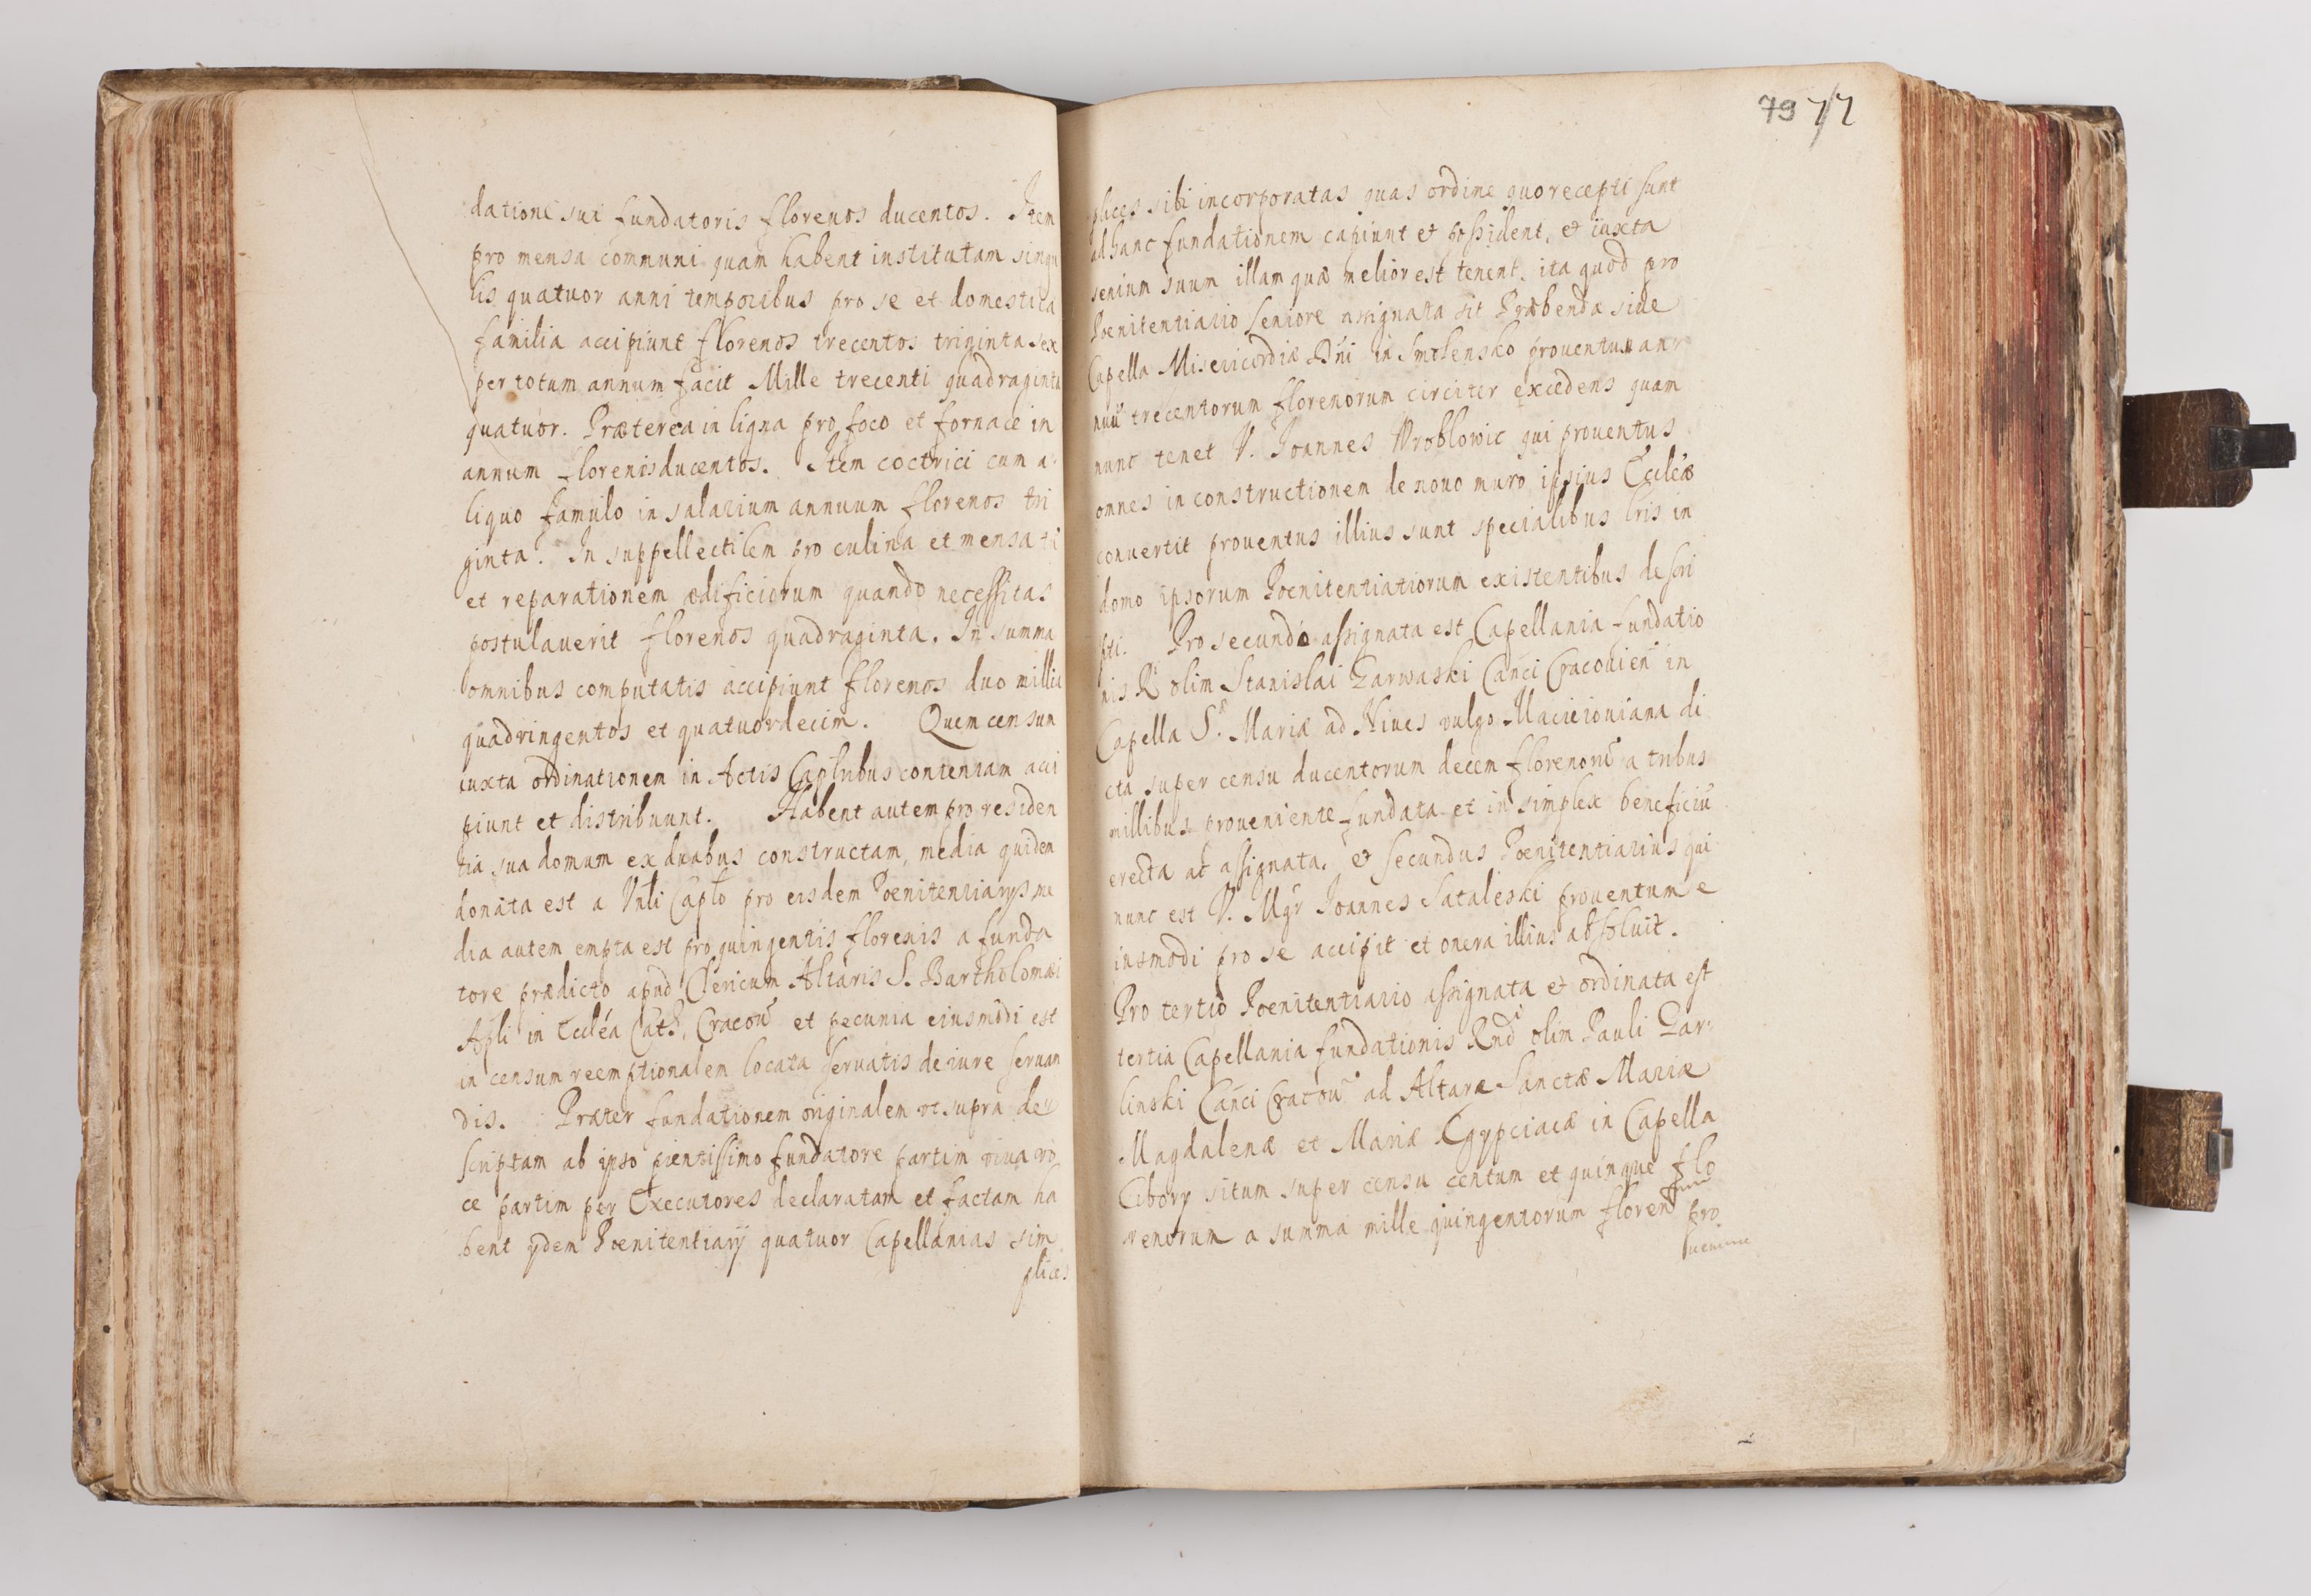 datione sui fundatoris florenos ducentos. Item
pro mensa communi quam habent institutam singu
lis quatuor anni temporibus pro se et domestica
familia accipiunt florenos trecentos triginta sex
per totum annum facit Mille trecenti quadraginta
quatuor. Præterea in ligna pro foco et fornace in
annum florenis ducentos. Item coctrici cum a
liquo famulo in salarium annuum florenos tri
ginta. In suppellectilem pro culina et mensa
et reparationem ædificiorum quando necessitas
postulauerit florenos quadraginta. In summa
omnibus computatis accipiunt florenos duo millia
quadringentos et quatuordecim. Quem censum
iuxta ordinationem in Actis Caplribus contentam acci
piunt et distribuunt. Habent autem pro residen
tia sua domum ex duabus constructam, media quidem
donata est a Vnli Caplo pro eisdem Pœnitentiarijs me
dia autem empta est pro quingentis florenis a funda
tore prædicto apud Clericum Altaris S. Bartholomæi
Apli in Eccléa Cath. Cracou et pecunia eiusmodi est
in censum reemptionalem locata seruatis de iure seruan
dis. Præter fundationem originalem vt supra de
scriptam ab ipso pientissimo fundatore partim viua vo
ce partim per Executores declaratam et factam ha
bent ijdem Pœnitentiarij quatuor Capellanias sim
plices
79 77
plices sibi incorporatas quas ordine quo recepti sunt
ad hanc fundationem capiunt et possident, et iuxta
senium suum illam quæ melior est tenent, ita quod pro
Pœnitentiario seniore assignata sit Præbenda siue
Capella Misericordiæ Dńi in Smolensko prouentum an
nuū trecentorum florenorum circiter excedens quam
nunc tenet V. Joannes Wroblowic qui prouentus
omnes in constructionem de nouo muro ipsius Eccléæ
conuertit prouentus illius sunt specialibus lris in
domo ipsorum Pœnitentiariorum existentibus descri
pti. Pro secundo assignata est Capellania fundatio
nis R olim Stanislai Zarwaski Cańci Cracouień in
Capella S. Mariæ ad Niues vulgo Macieiouiana di
cta super censu ducentorum decem florenorū a tribus
millibus proueniente fundata et in simplex beneficiū
erecta ac assignata, et secundus Pœnitentiarius qui
nunc est V. Mgr Joannes Sataleski prouentum e
iusmodi pro se accipit et onera illius absoluit.
Pro tertio Pœnitentiario assignata et ordinata est
tertia Capellania fundationis Rndi olim Pauli Zar
linski Cańci Cracou ad Altare Sanctæ Mariæ
Magdalenæ et Mariæ Ægypciacæ in Capella
Cibory situm super censu centum et quinque flo
renorum a summa mille quingentorum floren pro